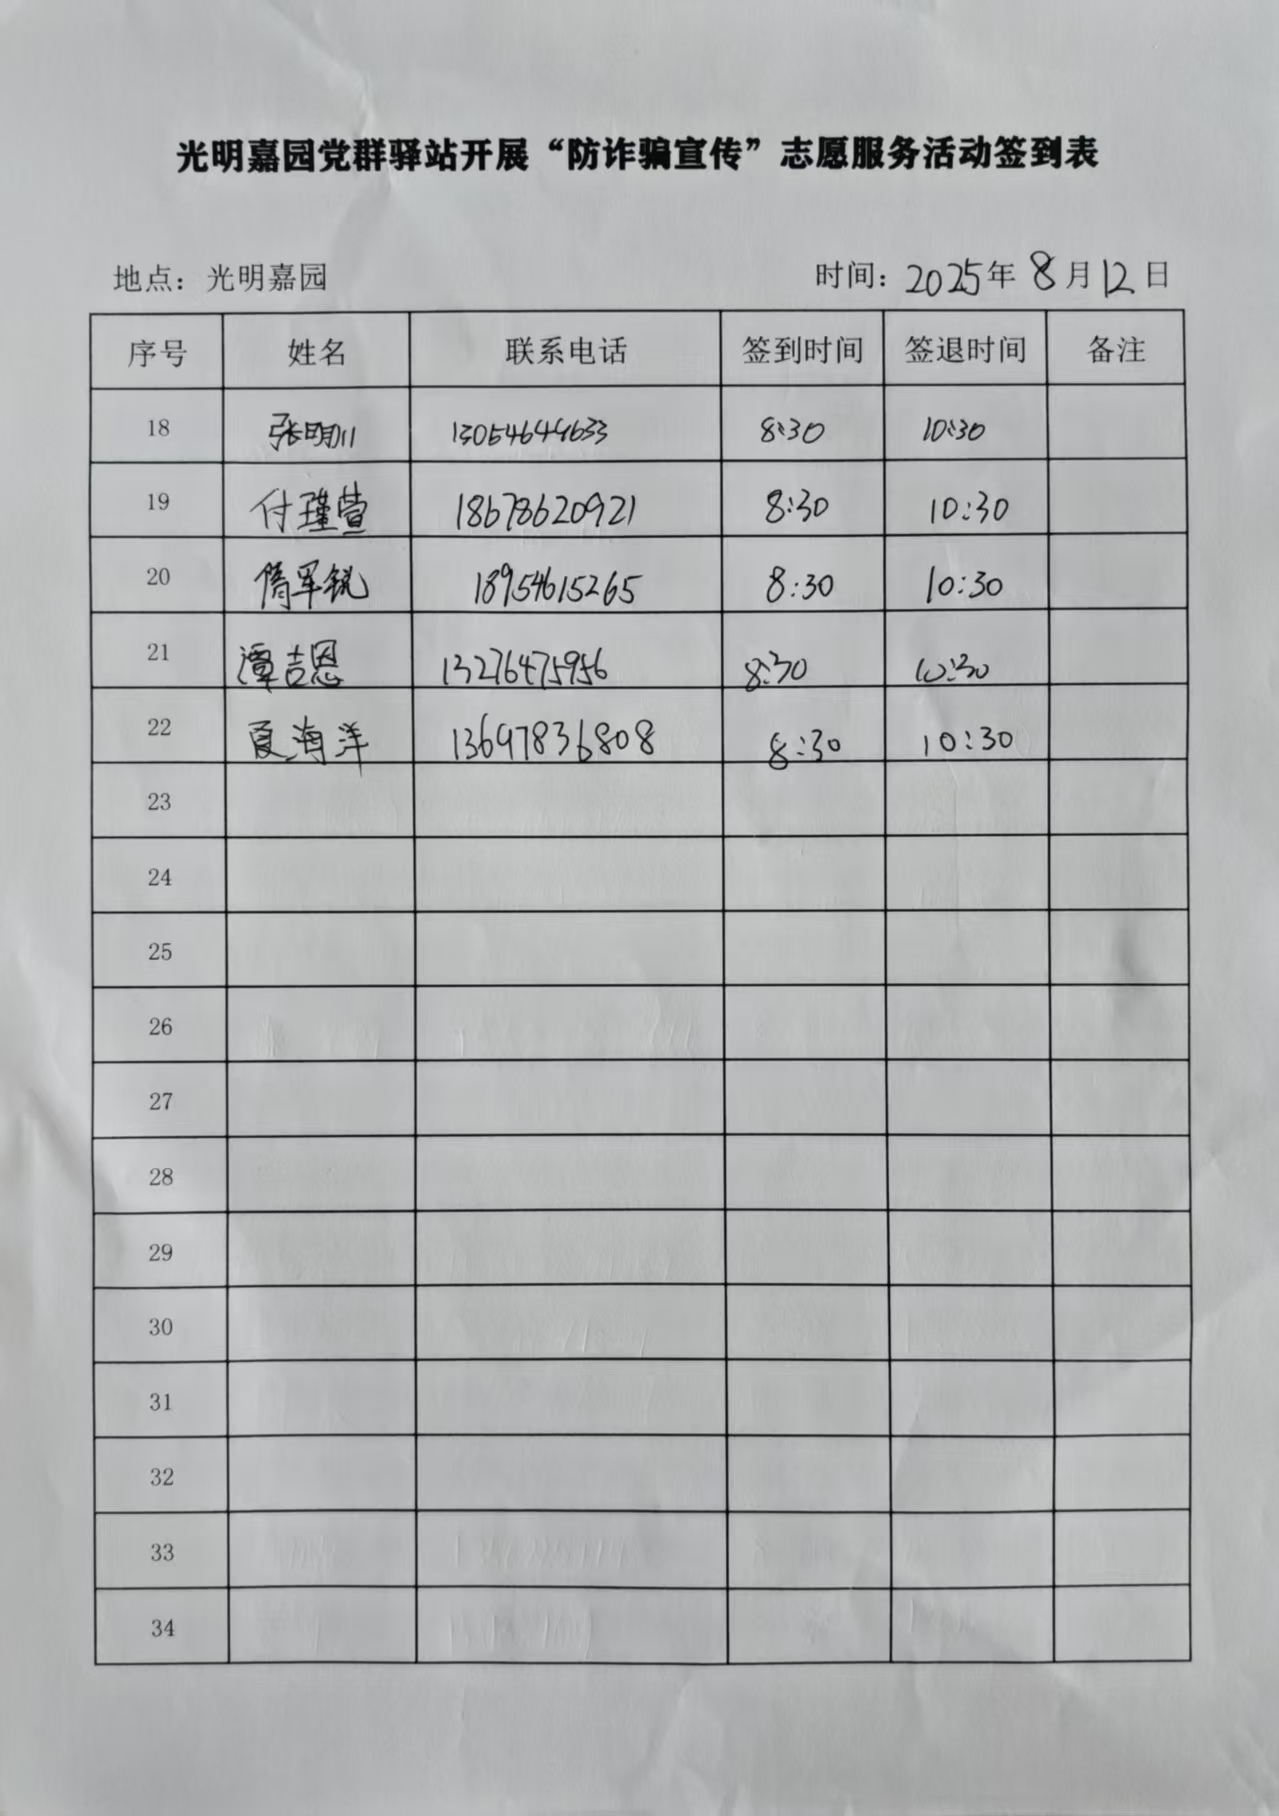 光明嘉园党群驿站开展“防诈骗宣传”志愿服务活动签到表
地点：光明嘉园 时间：2025年8月12日
序号 姓名 联系电话 签到时间 签退时间 备注
18 张明川 13054644633 8:30 10:30
19 付瑾萱 18678620921 8:30 10:30
20 隋军锐 18954615265 8:30 10:30
21 潭吉恩 13276475956 8:30 10:30
22 夏海洋 13697836808 8:30 10:30
23
24
25
26
27
28
29
30
31
32
33
34